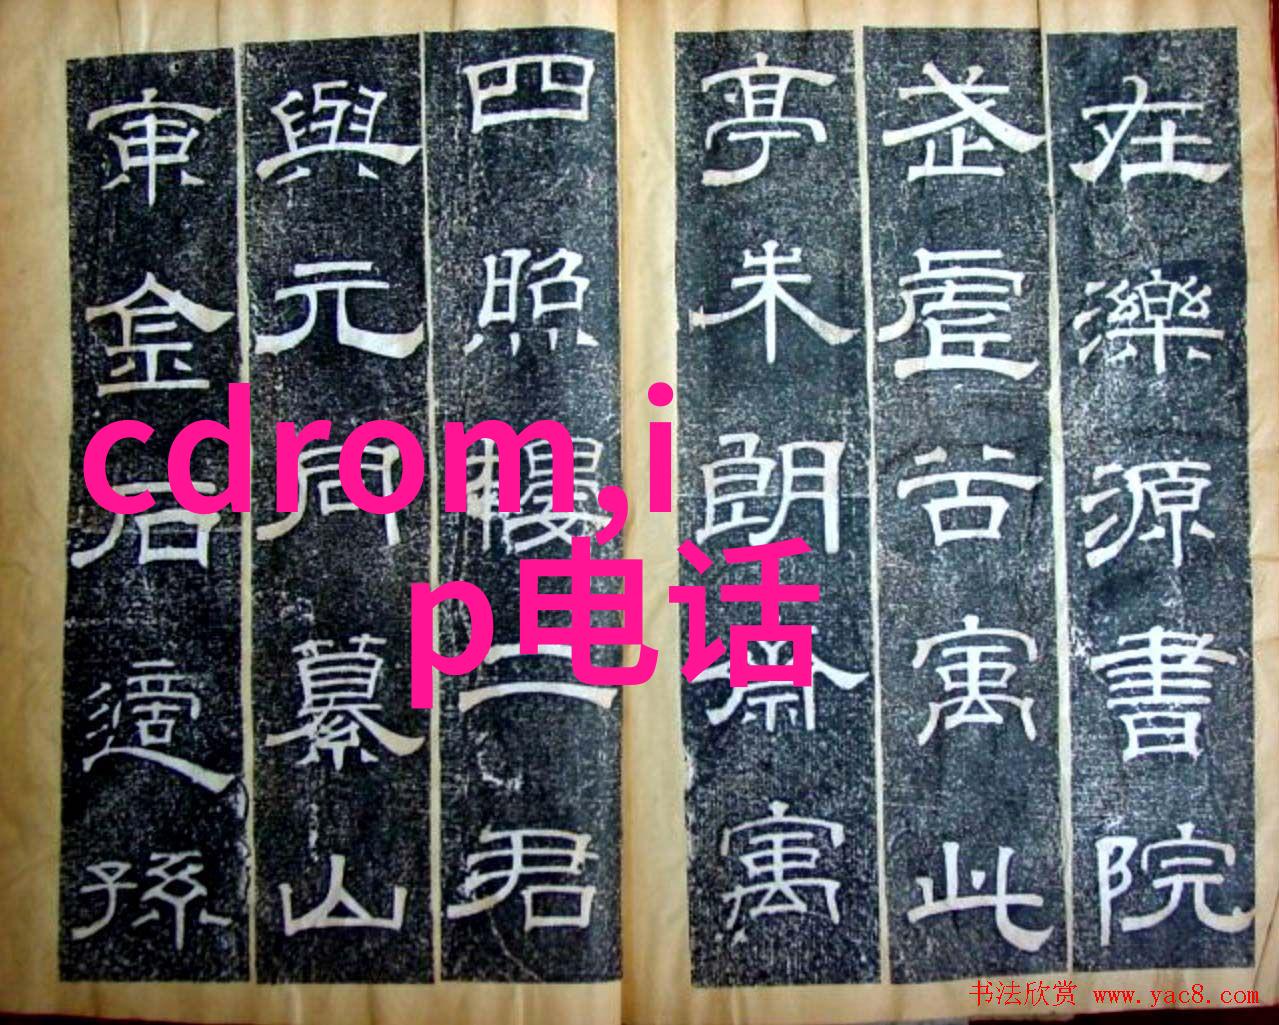 在濼源書院
武虛谷寓此
亭朱朗齋寓
四照樓二君
與元同纂山
東金石適孫
cdrom,i
p电话
书法欣赏 www.yac8.com